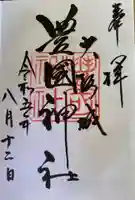 奉拝
大阪城
豊國神社
令和五年
八月十二日